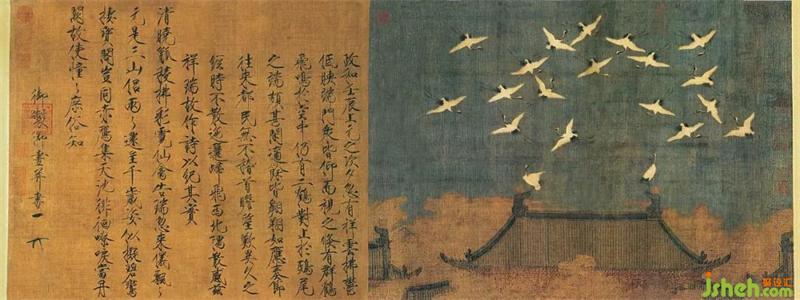 政和壬辰上元之次夕忽有祥雲拂鬱
低映端門衆皆仰而視之倏有群鶴
飛鳴於空中仍有二鶴對止於鴟尾
之端頗甚閑適餘皆翱翔如應奏節
往來都民無不稽首瞻望歎異久之
經時不散迤邐歸飛西北隅散感茲
祥瑞故作詩以紀其實
清曉觚稜拂彩霓仙禽告瑞忽來儀飄〻
元是三山侶兩〻還呈千歲姿似擬碧鸞
棲寶閣豈同赤鴈集天池徘徊嘹唳當丹
闕故使憧〻庶俗知
御製御畫并書
jsheh.com